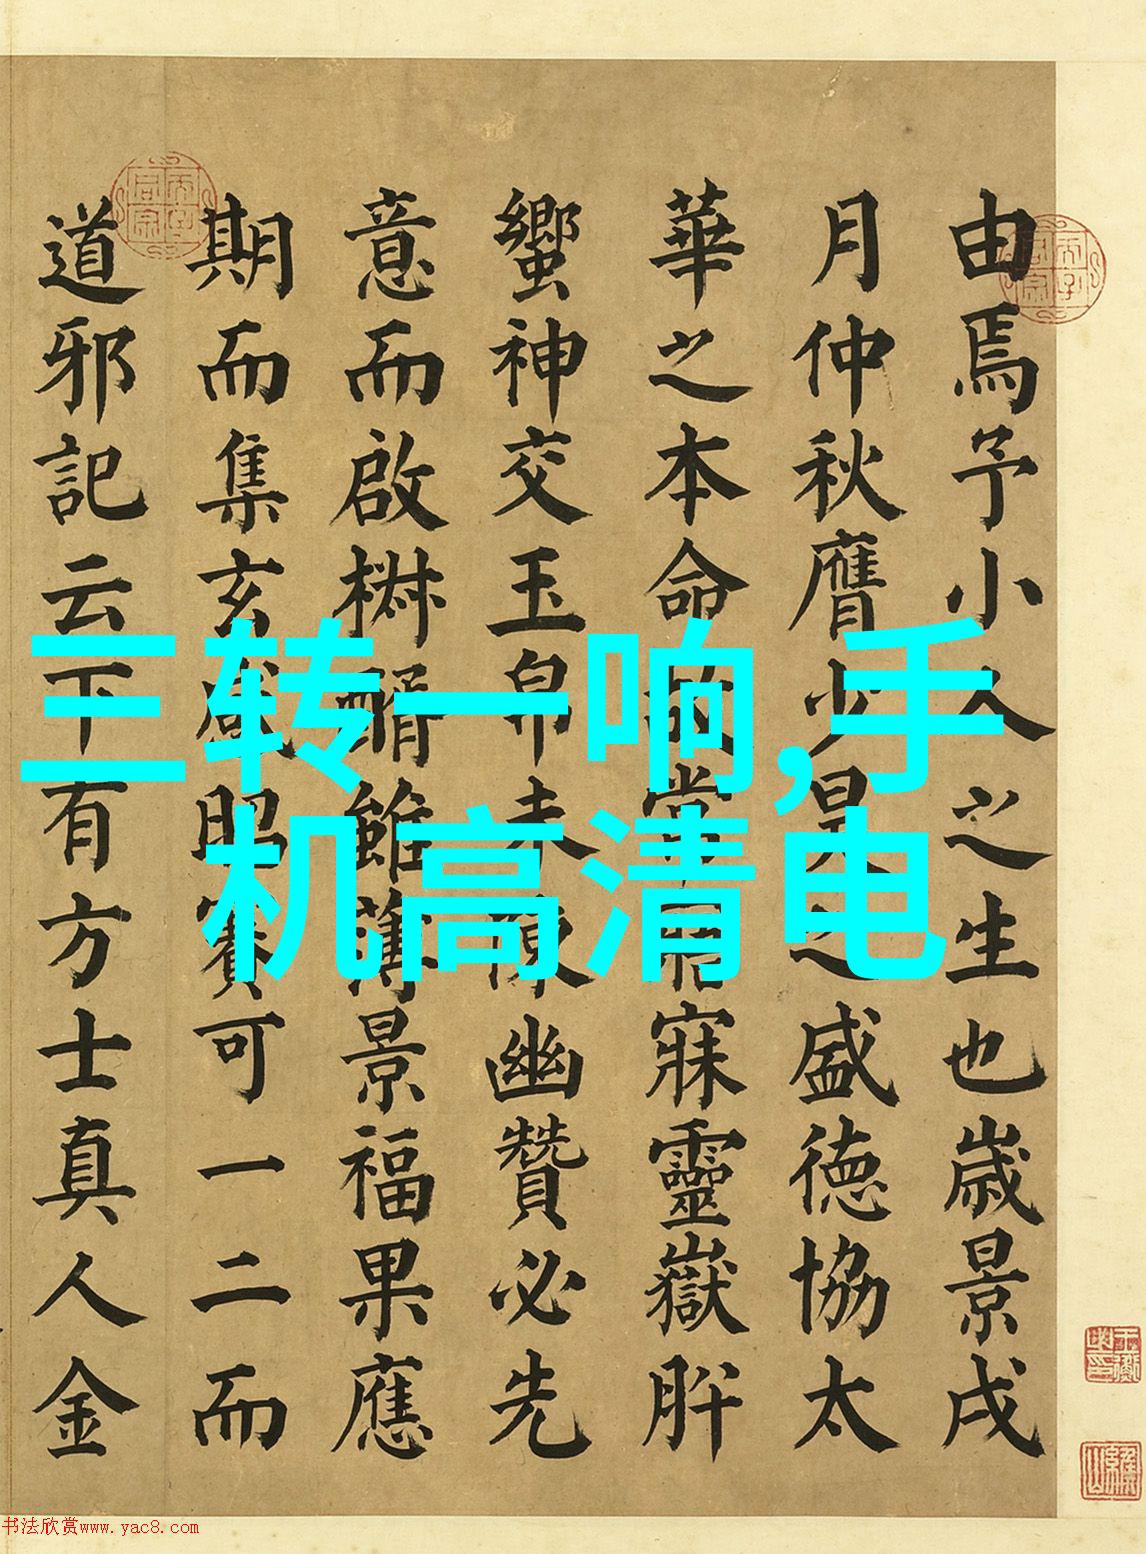 三转一响,手
机高清电
由焉予小人之生也歲景戌
月仲秋膺少昊之盛德協太
華之本命故常寤寐靈嶽肸
蠁神交玉帛未陳幽贊必先
意而啟椒醑雖薄景福果應
期而集玄感昭賽可一二而
道邪記云下有方士真人金
书法欣赏www.yac8.com